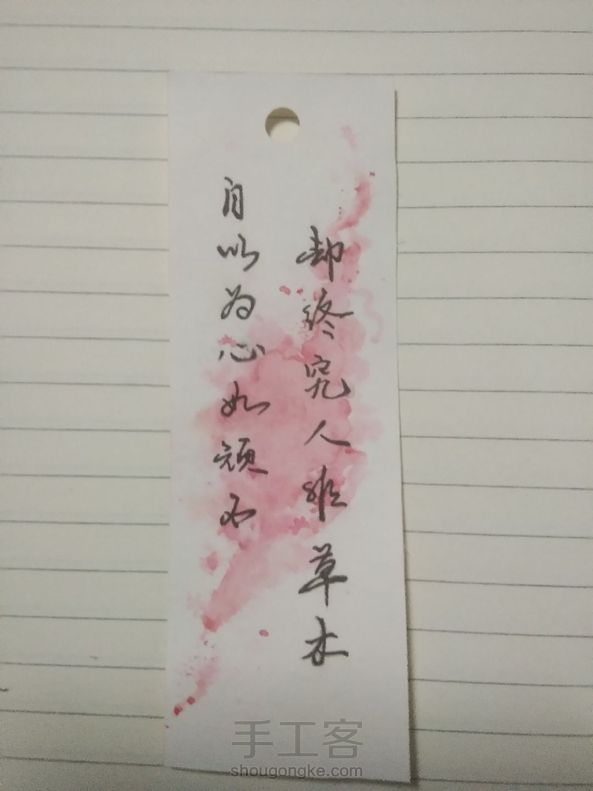 自以为心如顽石
却终究人非草木
手工客
shougongke.com